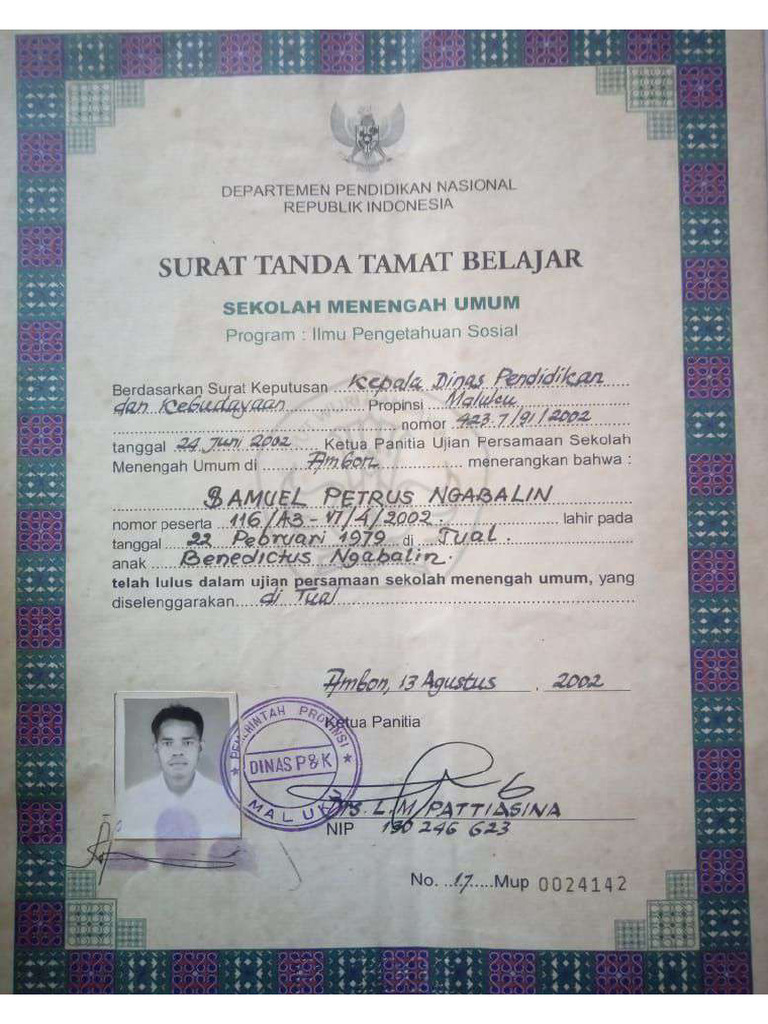 DEPARTEMEN PENDIDIKAN NASIONAL
REPUBLIK INDONESIA
SURAT TANDA TAMAT BELAJAR
SEKOLAH MENENGAH UMUM
Program : Ilmu Pengetahuan Sosial
Berdasarkan Surat Keputusan Kepala Dinas Pendidikan
dan Kebudayaan Propinsi Maluku
nomor 423.7/91/2002
tanggal 24 Juni 2002 Ketua Panitia Ujian Persamaan Sekolah
Menengah Umum di Ambon menerangkan bahwa :
SAMUEL PETRUS NGABALIN
nomor peserta 116/A3-VI/4/2002. lahir pada
tanggal 22 Pebruari 1979 di Tual.
anak Benedictus Ngabalin.
telah lulus dalam ujian persamaan sekolah menengah umum, yang
diselenggarakan di Tual
Ambon, 13 Agustus . 2002
Ketua Panitia
PEMERINTAH PROVINSI
DINAS P&K
MALUKU
Drs. L.M. PATTIASINA
NIP 130 246 623
No. 17 Mup 0024142